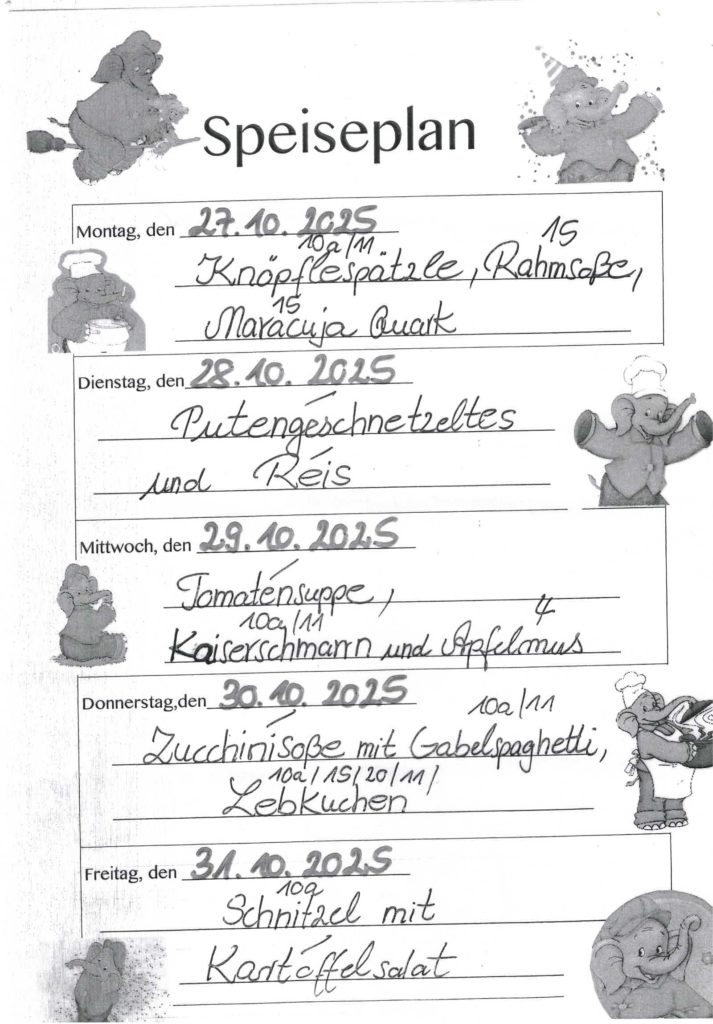 Speiseplan
Montag, den 27.10.2025
10a/11 15
Knöpflespätzle, Rahmsoße,
15
Maracuja Quark
Dienstag, den 28.10.2025
Putengeschnetzeltes
und Reis
Mittwoch, den 29.10.2025
Tomatensuppe,
10a/11 4
Kaiserschmarrn und Apfelmus
Donnerstag,den 30.10.2025
10a/11
Zucchinisoße mit Gabelspaghetti,
10a/15/20/11/
Lebkuchen
Freitag, den 31.10.2025
10a
Schnitzel mit
Kartoffelsalat